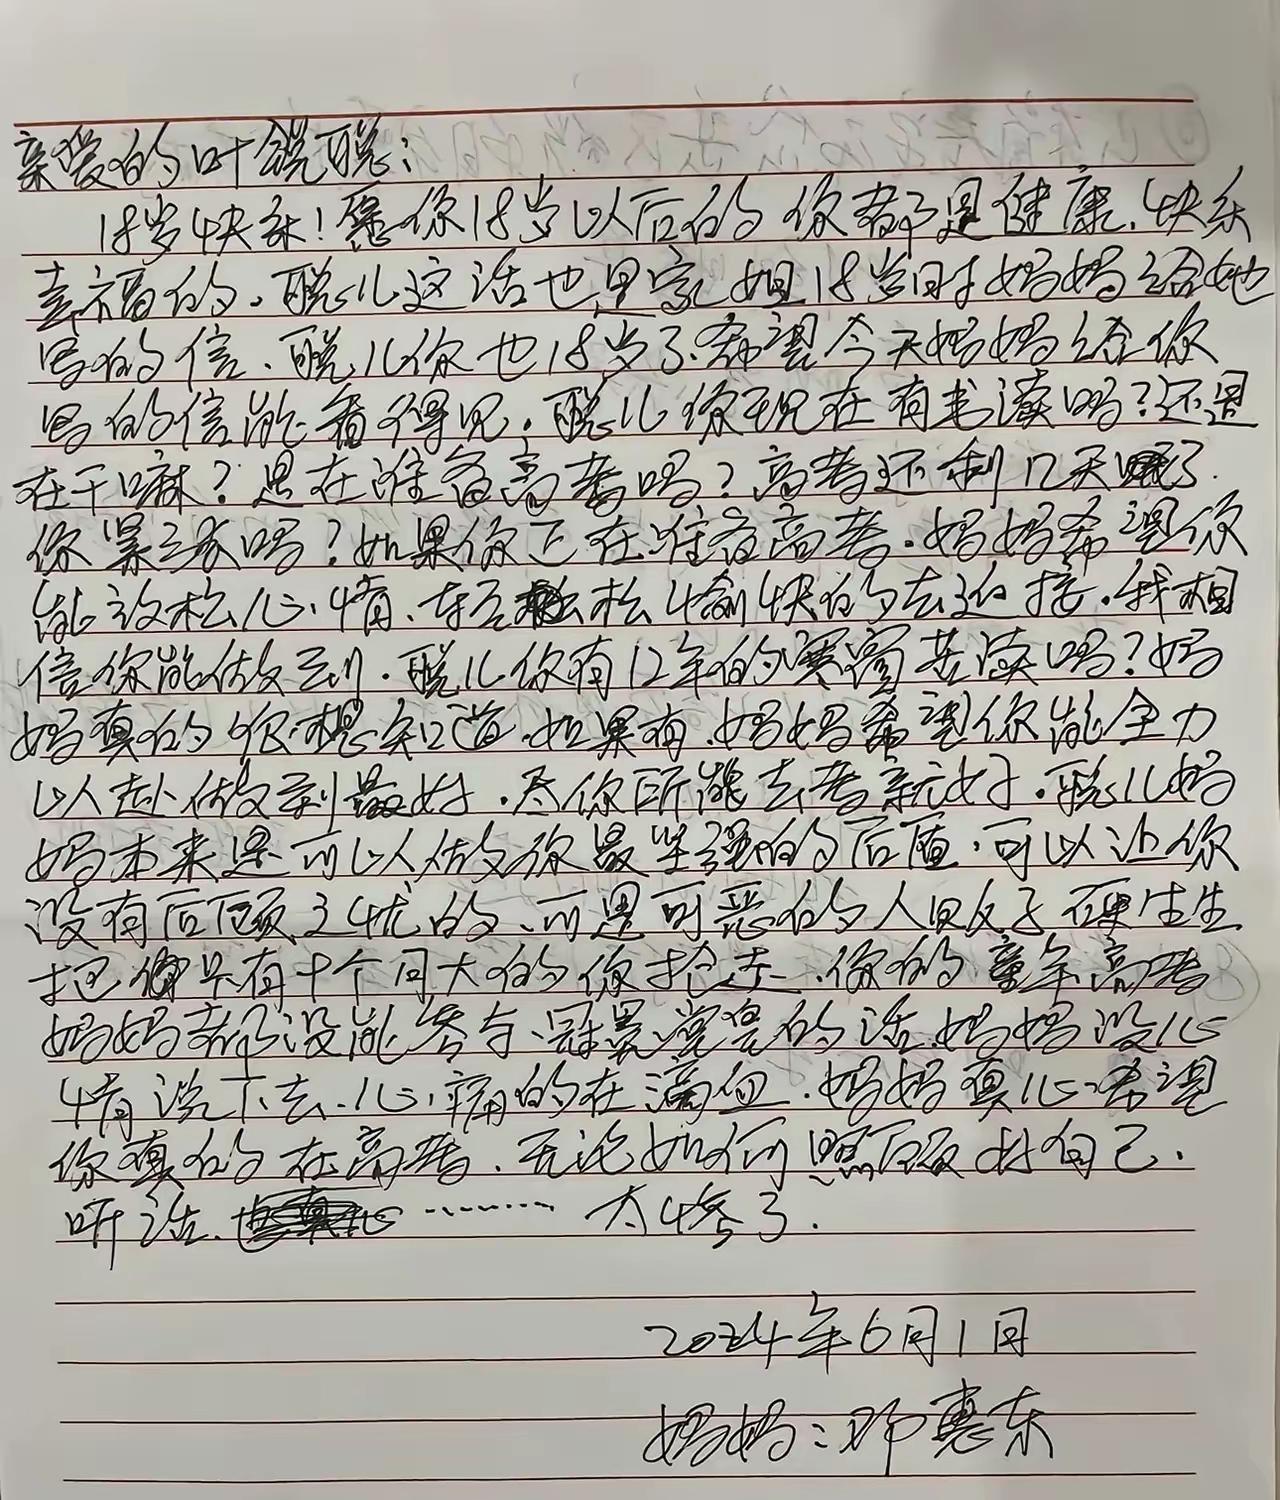 亲爱的叶锐聪：
18岁快乐！愿你18岁以后的你都是健康、快乐
幸福的。聪儿这话也是家姐18岁时妈妈给她
写的信、聪儿你也18岁了.希望今天妈妈给你
写的信能看得见。聪儿你现在有书读吗？还是
在干嘛？是在准备高考吗？高考还剩几天了.
你紧张吗？如果你正在准备高考.妈妈希望你
能放松心情、轻松愉快的去迎接.我相
信你能做到.聪儿你有12年的寒窗苦读吗？妈
妈真的很想知道.如果有.妈妈希望你能全力
以赴做到最好.尽你所能去考就好.聪儿妈
妈本来是可以做你最坚强的后盾.可以让你
没有后顾之忧的、可是可恶的人贩子硬生生
把只有十个月大的你抢走.你的童年高考
妈妈都没能参与、冠冕堂皇的话.妈妈没心
情说下去.心痛的在滴血.妈妈真心希望
你真的在高考、无论如何照顾好自己.
听话、………太惨了.
2024年6月1日
妈妈：邓惠东